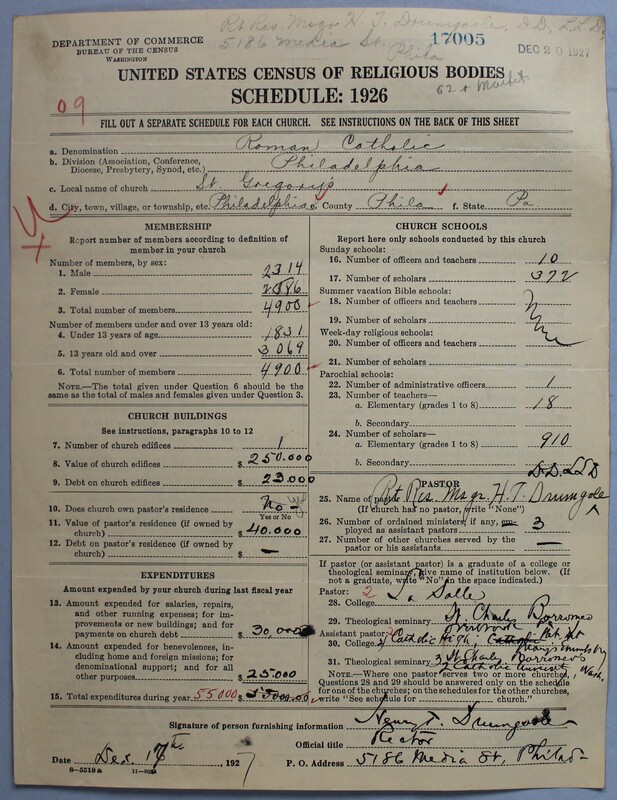 Rt Rev. Msgr. H. T. Drumgoole, D.D., L.L.D.
5186 Media St.
Phila
17005
DEC 20 1927
62 & Market
DEPARTMENT OF COMMERCE
BUREAU OF THE CENSUS
WASHINGTON
UNITED STATES CENSUS OF RELIGIOUS BODIES
SCHEDULE: 1926
09
FILL OUT A SEPARATE SCHEDULE FOR EACH CHURCH. SEE INSTRUCTIONS ON THE BACK OF THIS SHEET
a. Denomination Roman Catholic
b. Division (Association, Conference, Diocese, Presbytery, Synod, etc.) Philadelphia
c. Local name of church St. Gregory's
d. City, town, village, or township, etc. Philadelphia e. County Phila f. State Pa
MEMBERSHIP
Report number of members according to definition of
member in your church
Number of members, by sex:
1. Male 2314
2. Female 2586
3. Total number of members 4900
Number of members under and over 13 years old:
4. Under 13 years of age 1831
5. 13 years old and over 3069
6. Total number of members 4900
NOTE.—The total given under Question 6 should be
same as the total of males and females given under Question 3.
CHURCH BUILDINGS
See instructions, paragraphs 10 to 12
7. Number of church edifices 1
8. Value of church edifices $ 250.000
9. Debt on church edifices $ 23.000
10. Does church own pastor's residence? No - yes
Yes or No
11. Value of pastor's residence (if owned by
church) $ 40.000
12. Debt on pastor's residence (if owned by
church) $ —
EXPENDITURES
Amount expended by your church during last fiscal year
13. Amount expended for salaries, repairs,
and other running expenses; for im-
provements or new buildings; and for
payments on church debt $ 30.000
14. Amount expended for benevolences, in-
cluding home and foreign missions; for
denominational support; and for all
other purposes $ 25.000
15. Total expenditures during year 55000 $ 55000.00
CHURCH SCHOOLS
Report here only schools conducted by this church
Sunday schools:
16. Number of officers and teachers 10
17. Number of scholars 372
Summer vacation Bible schools:
18. Number of officers and teachers
19. Number of scholars
Week-day religious schools:
20. Number of officers and teachers
21. Number of scholars
Parochial schools:
22. Number of administrative officers 1
23. Number of teachers—
a. Elementary (grades 1 to 8) 18
b. Secondary
24. Number of scholars—
a. Elementary (grades 1 to 8) 910
b. Secondary
D.D. LLD
PASTOR
25. Name of pastor Rt. Rev. Msgr. H. T. Drumgoole
(If church has no pastor, write "None")
26. Number of ordained ministers, if any, em-
ployed as assistant pastors 3
27. Number of other churches served by the
pastor or his assistants —
If pastor (or assistant pastor) is a graduate of a college or
theological seminary, give name of institution below. (If
not a graduate, write "No" in the space indicated.)
Pastor: 2
28. College La Salle
29. Theological seminary St. Charles Borromeo
Overbrook
Assistant pastor:
30. College Catholic High
31. Theological seminary 3 St Charles Borromeo
2 Catholic Wash.
NOTE.—Where one pastor serves two or more churches,
Questions 28 and 29 should be answered only on the schedule
for one of the churches; on the schedules for the other churches,
write "See schedule for church."
Signature of person furnishing information Henry T. Drumgoole
Official title Rector
Date Dec. 17th, 1927 P. O. Address 5186 Media St, Philad-
8—5518a 11—9054